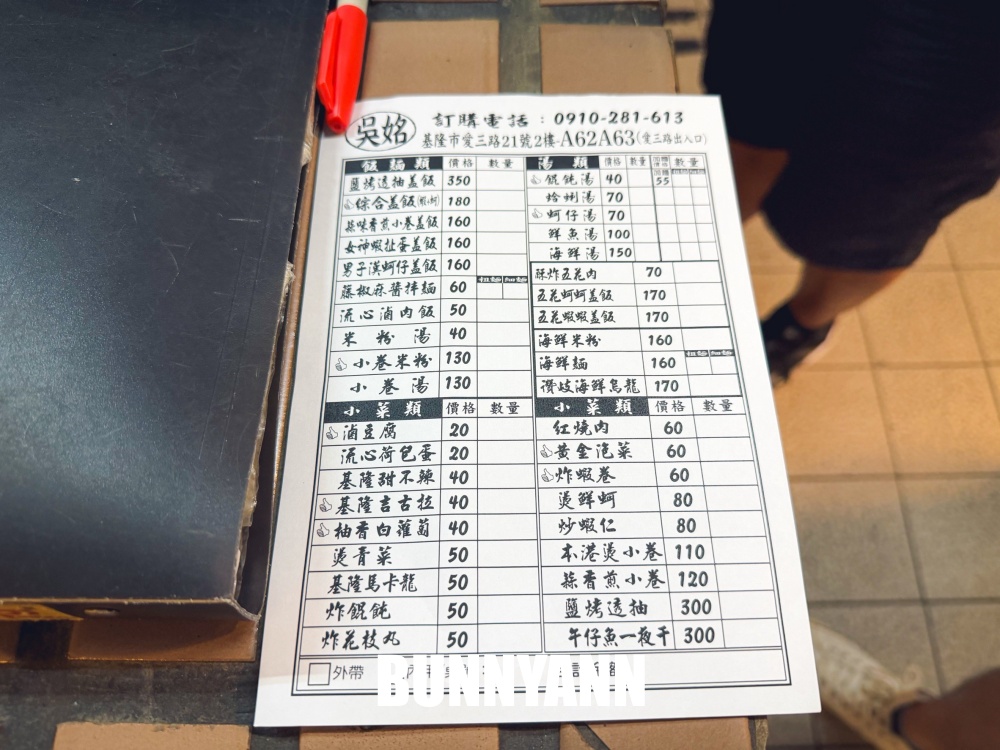 吳姳
訂購電話：0910-281-613
基隆市愛三路21號2樓-A62A63(愛三路出入口)
飯麵類 價格 數量
鹽烤透抽蓋飯 350
綜合蓋飯(蝦+蚵) 180
蒜味香煎小卷蓋飯 160
女神蝦扯蛋蓋飯 160
男子漢蚵仔蓋飯 160
藤椒麻醬拌麵 60 粗麵 細麵
流心滷肉飯 50
米粉湯 40
小卷米粉 130
小卷湯 130
湯類 價格 數量 加麵價格 數量
餛飩湯 40 加麵 55
蛤蜊湯 70
蚵仔湯 70
鮮魚湯 100
海鮮湯 150
酥炸五花肉 70
五花蚵蚵蓋飯 170
五花蝦蝦蓋飯 170
海鮮米粉 160
海鮮麵 160 粗麵 細麵
讚岐海鮮烏龍 170
小菜類 價格 數量
滷豆腐 20
流心荷包蛋 20
基隆甜不辣 40
基隆吉古拉 40
柚香白蘿蔔 40
燙青菜 50
基隆馬卡龍 50
炸餛飩 50
炸花枝丸 50
小菜類 價格 數量
紅燒肉 60
黃金泡菜 60
炸蝦卷 60
燙鮮蚵 80
炒蝦仁 80
本港燙小卷 110
蒜香煎小卷 120
鹽烤透抽 300
午仔魚一夜干 300
外帶
BUNNYANN